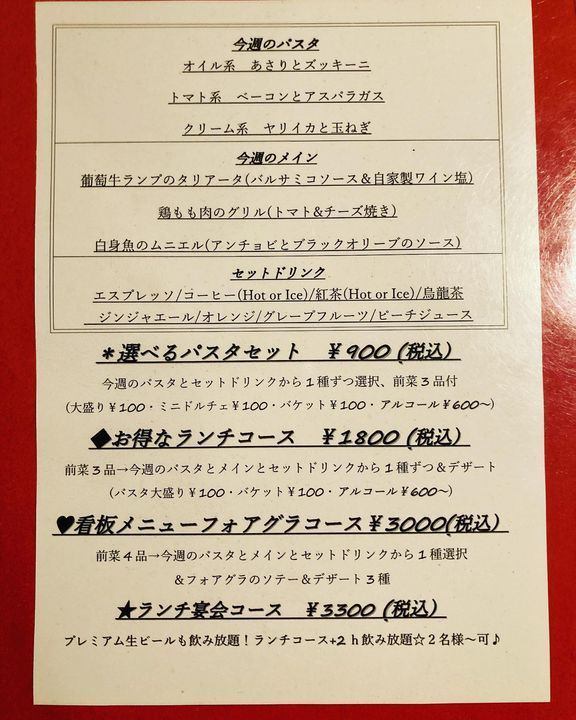 今週のパスタ
オイル系　あさりとズッキーニ
トマト系　ベーコンとアスパラガス
クリーム系　ヤリイカと玉ねぎ
今週のメイン
葡萄牛ランプのタリアータ(バルサミコソース＆自家製ワイン塩)
鶏もも肉のグリル(トマト&チーズ焼き)
白身魚のムニエル(アンチョビとブラックオリーブのソース)
セットドリンク
エスプレッソ/コーヒー(Hot or Ice)/紅茶(Hot or Ice)/烏龍茶
ジンジャエール/オレンジ/グレープフルーツ/ピーチジュース
＊選べるパスタセット　￥900 (税込)
今週のパスタとセットドリンクから１種ずつ選択、前菜３品付
(大盛り￥100・ミニドルチェ￥100・バケット￥100・アルコール￥600～)
◆お得なランチコース　￥1800 (税込)
前菜３品→今週のパスタとメインとセットドリンクから１種ずつ＆デザート
(パスタ大盛り￥100・バケット￥100・アルコール￥600～)
♥看板メニューフォアグラコース￥3000(税込)
前菜４品→今週のパスタとメインとセットドリンクから１種選択
＆フォアグラのソテー＆デザート３種
★ランチ宴会コース　￥3300 (税込)
プレミアム生ビールも飲み放題！ランチコース+2ｈ飲み放題☆２名様～可♪